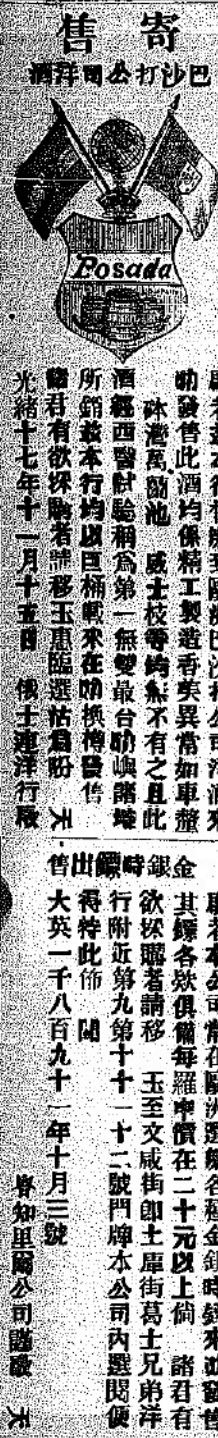 寄售
巴沙打公司洋酒
Posada
叻發售此酒均係精工製造香美異常如車釐
砵灣萬蘭池 威士枝等均無不有之且此
酒經西醫試驗稱為第一無雙最合叻嶼諸埠
所銷茲本行均以巨桶載來在叻換樽發售
諸君有欲採購者請移玉惠臨選估為盼 天
光緒十七年十一月十五日 俄士連洋行啟
金銀時鏢出售
其鏢各欵俱備每羅申價在二十元以上倘 諸君有
欲採購者請移 玉至文咸街即土庫街葛士兄弟洋
行附近第九第十十一十二號門牌本公司內選閱便
得特此佈 聞
大英一千八百九十一年十月三號
公司謹啟 天